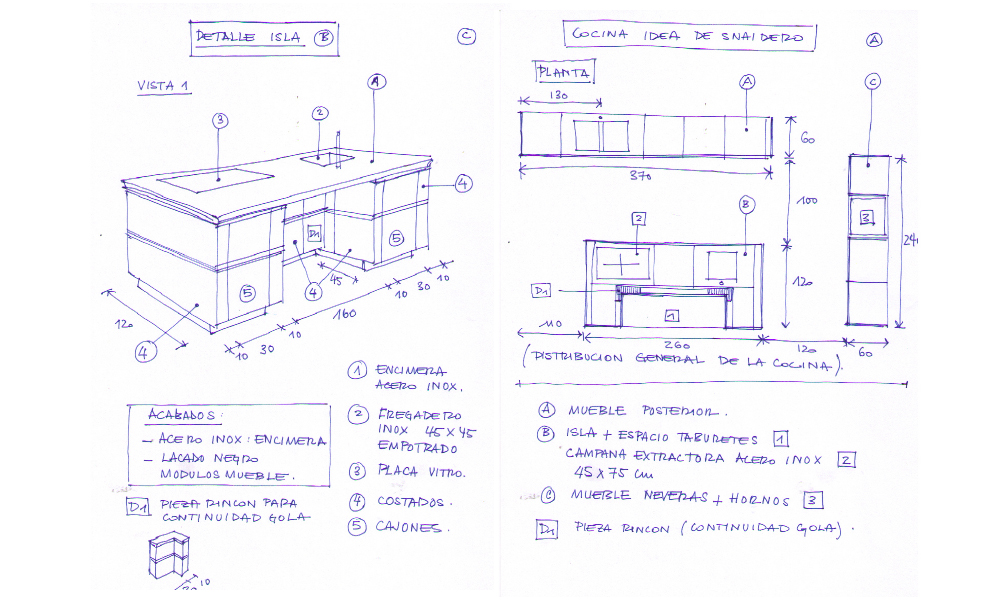 DETALLE ISLA B
C
VISTA 1
3
2
A
4
D1
5
5
45
4
10
30
10
160
10
30
10
120
4
10
30
10
1 ENCIMERA
ACERO INOX.
2 FREGADERO
INOX 45X45
EMPOTRADO
3 PLACA VITRO.
4 COSTADOS.
5 CAJONES.
ACABADOS:
- ACERO INOX: ENCIMERA
- LACADO NEGRO
MODULOS MUEBLE.
D1 PIEZA RINCON PARA
CONTINUIDAD GOLA
10
COCINA IDEA DE SNAIDERO
A
PLANTA
130
A
C
60
370
100
3
2
B
D1
1
120
110
260
120
60
(DISTRIBUCION GENERAL DE LA COCINA).
A MUEBLE POSTERIOR.
B ISLA + ESPACIO TABURETES 1
CAMPANA EXTRACTORA ACERO INOX 2
45 X 75 cm
C MUEBLE NEVERAS + HORNOS 3
D1 PIEZA RINCON (CONTINUIDAD GOLA).